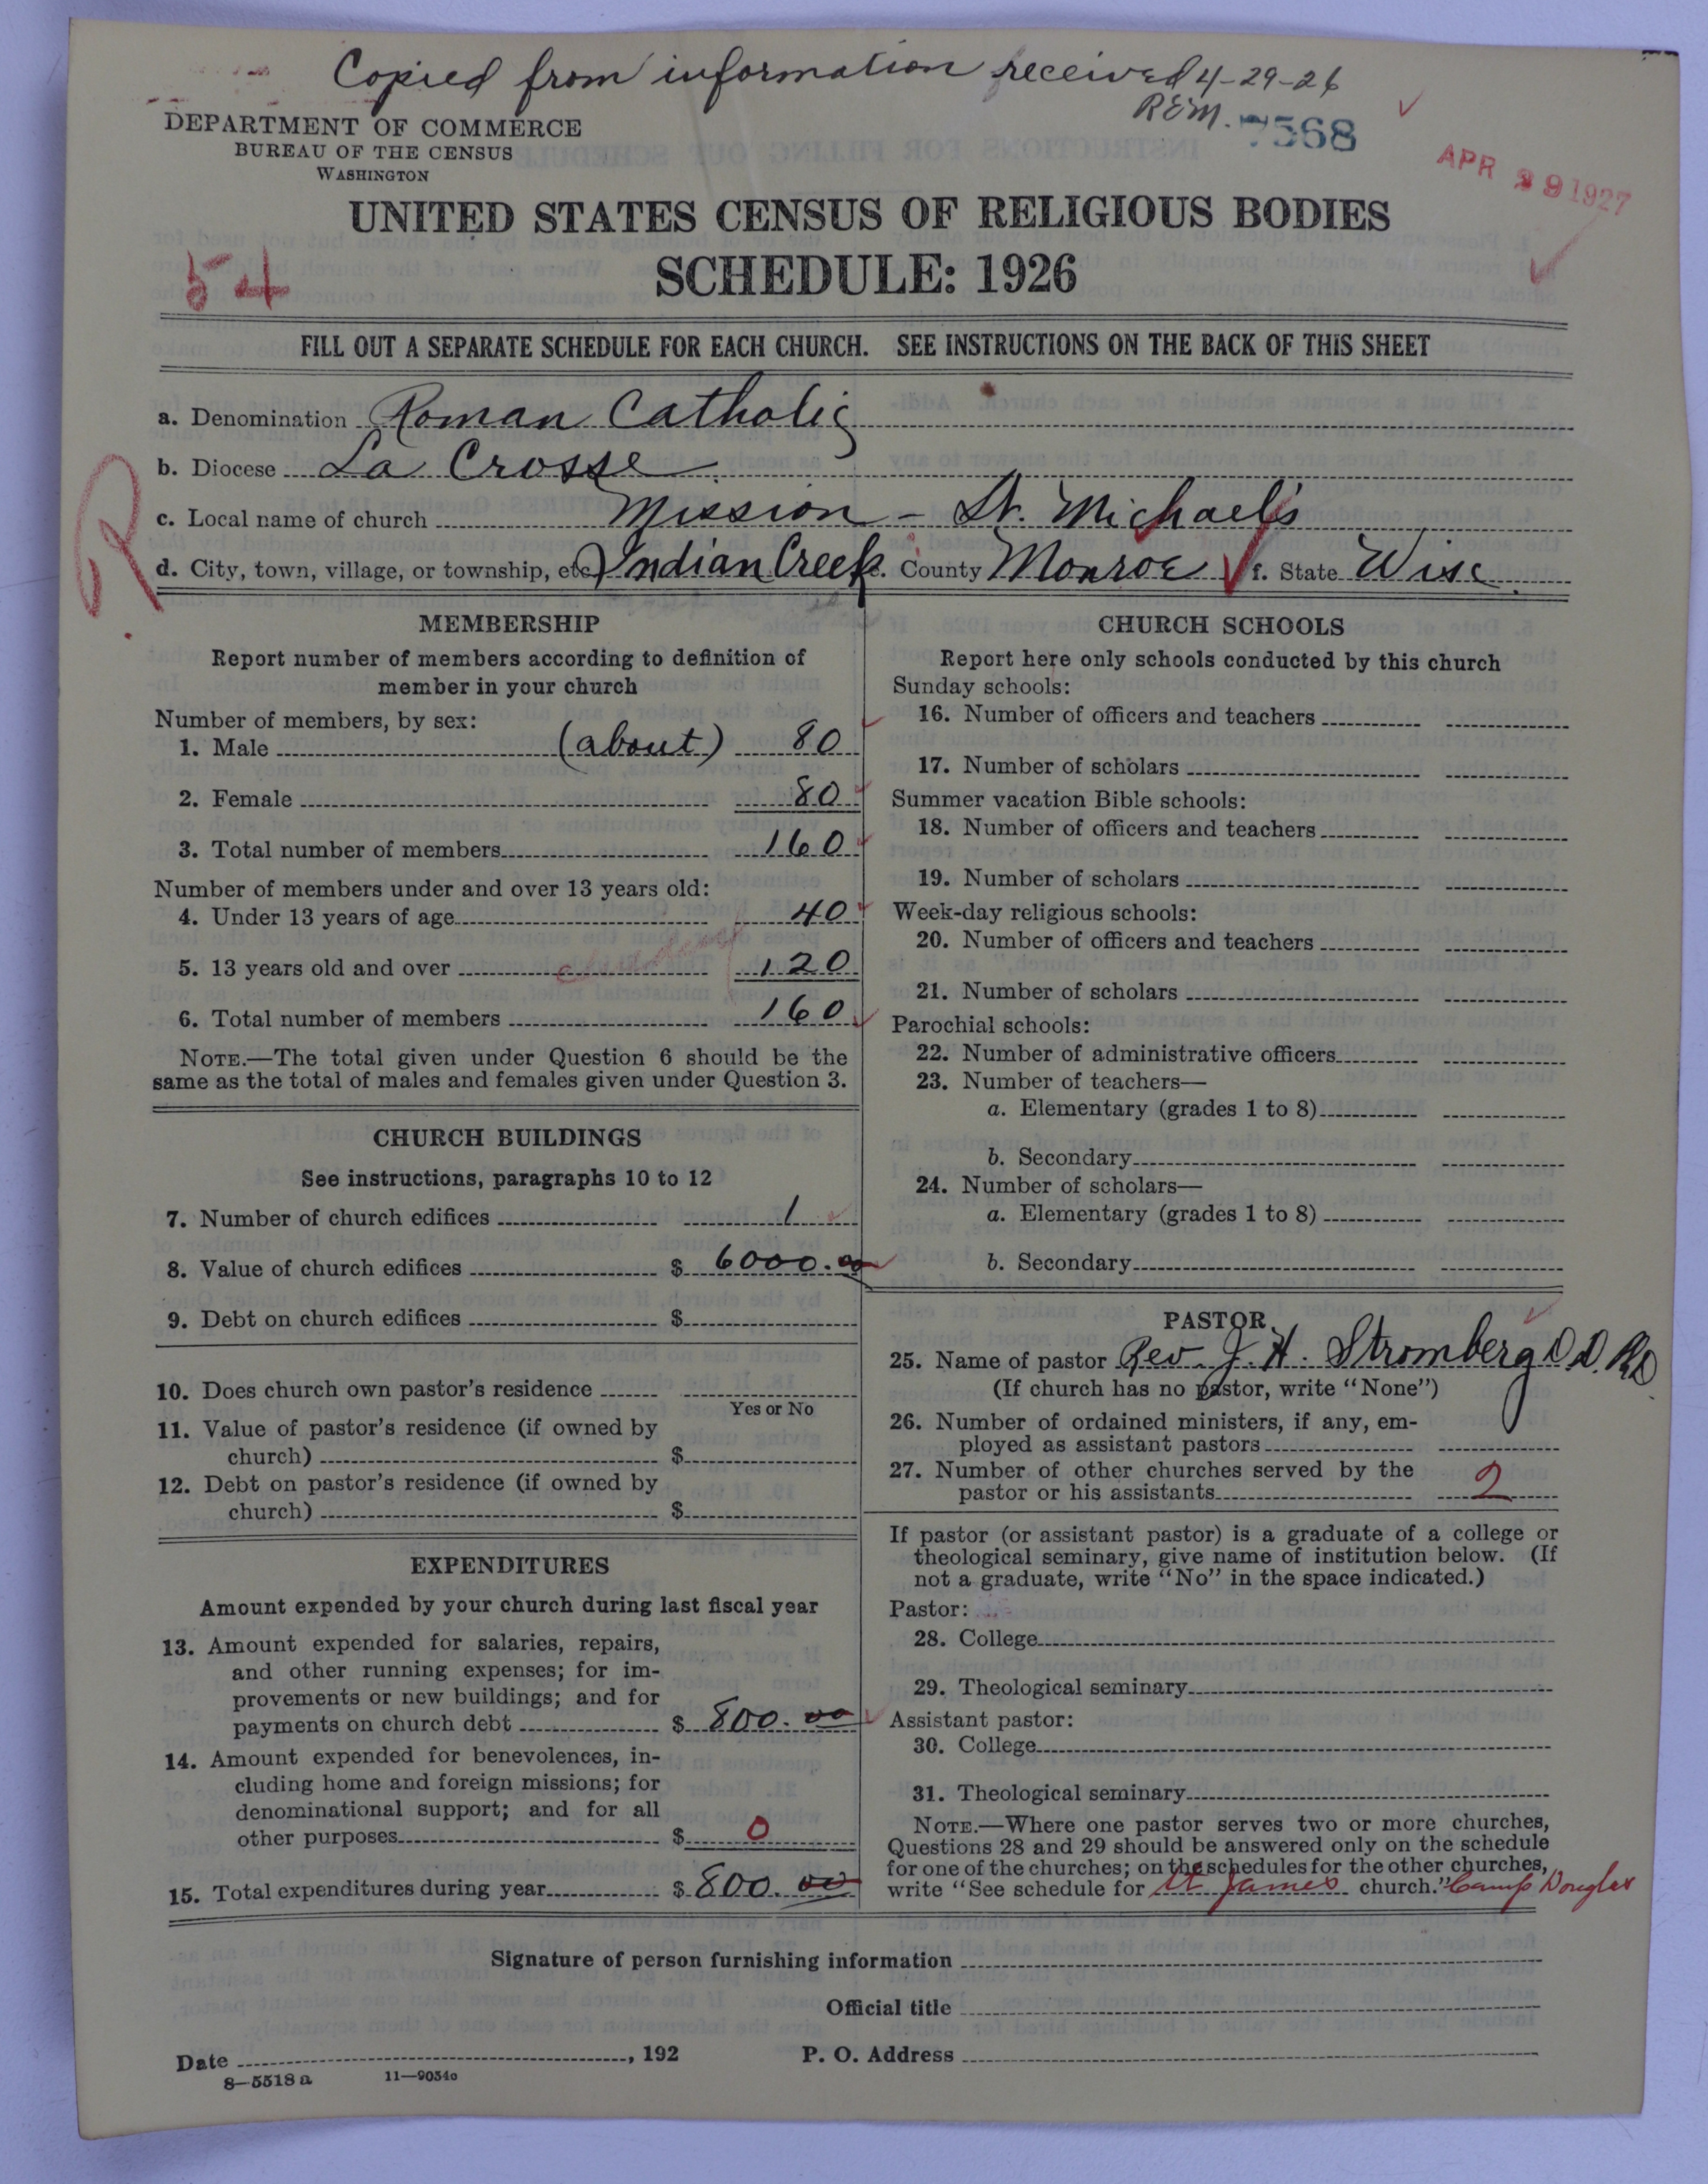 Copied from information received 4-29-26
R.E.M. 7568
DEPARTMENT OF COMMERCE
BUREAU OF THE CENSUS
WASHINGTON
APR 29 1927
UNITED STATES CENSUS OF RELIGIOUS BODIES
SCHEDULE: 1926
54
FILL OUT A SEPARATE SCHEDULE FOR EACH CHURCH. SEE INSTRUCTIONS ON THE BACK OF THIS SHEET
a. Denomination Roman Catholic
b. Diocese La Crosse
c. Local name of church Mission - St. Michael's
d. City, town, village, or township, etc. Indian Creek e. County Monroe f. State Wisc.
R
MEMBERSHIP
Report number of members according to definition of
member in your church
Number of members, by sex:
1. Male (about) 80
2. Female 80
3. Total number of members 160
Number of members under and over 13 years old:
4. Under 13 years of age 40
5. 13 years old and over 120
6. Total number of members 160
NOTE.—The total given under Question 6 should be the
same as the total of males and females given under Question 3.
CHURCH BUILDINGS
See instructions, paragraphs 10 to 12
7. Number of church edifices 1
8. Value of church edifices $ 6000.00
9. Debt on church edifices $
10. Does church own pastor's residence
Yes or No
11. Value of pastor's residence (if owned by
church) $
12. Debt on pastor's residence (if owned by
church) $
EXPENDITURES
Amount expended by your church during last fiscal year
13. Amount expended for salaries, repairs,
and other running expenses; for im-
provements or new buildings; and for
payments on church debt $ 800.00
14. Amount expended for benevolences, in-
cluding home and foreign missions; for
denominational support; and for all
other purposes $ 0
15. Total expenditures during year $ 800.00
CHURCH SCHOOLS
Report here only schools conducted by this church
Sunday schools:
16. Number of officers and teachers
17. Number of scholars
Summer vacation Bible schools:
18. Number of officers and teachers
19. Number of scholars
Week-day religious schools:
20. Number of officers and teachers
21. Number of scholars
Parochial schools:
22. Number of administrative officers
23. Number of teachers—
a. Elementary (grades 1 to 8)
b. Secondary
24. Number of scholars—
a. Elementary (grades 1 to 8)
b. Secondary
PASTOR
25. Name of pastor Rev. J. H. Stromberg D.D.
(If church has no pastor, write "None")
26. Number of ordained ministers, if any, em-
ployed as assistant pastors
27. Number of other churches served by the
pastor or his assistants 2
If pastor (or assistant pastor) is a graduate of a college or
theological seminary, give name of institution below. (If
not a graduate, write "No" in the space indicated.)
Pastor:
28. College
29. Theological seminary
Assistant pastor:
30. College
31. Theological seminary
NOTE.—Where one pastor serves two or more churches,
Questions 28 and 29 should be answered only on the schedule
for one of the churches; on the schedules for the other churches,
write "See schedule for St James church." Camp Douglas
Signature of person furnishing information
Official title
Date , 192 P. O. Address
8—5518 a 11—9034a